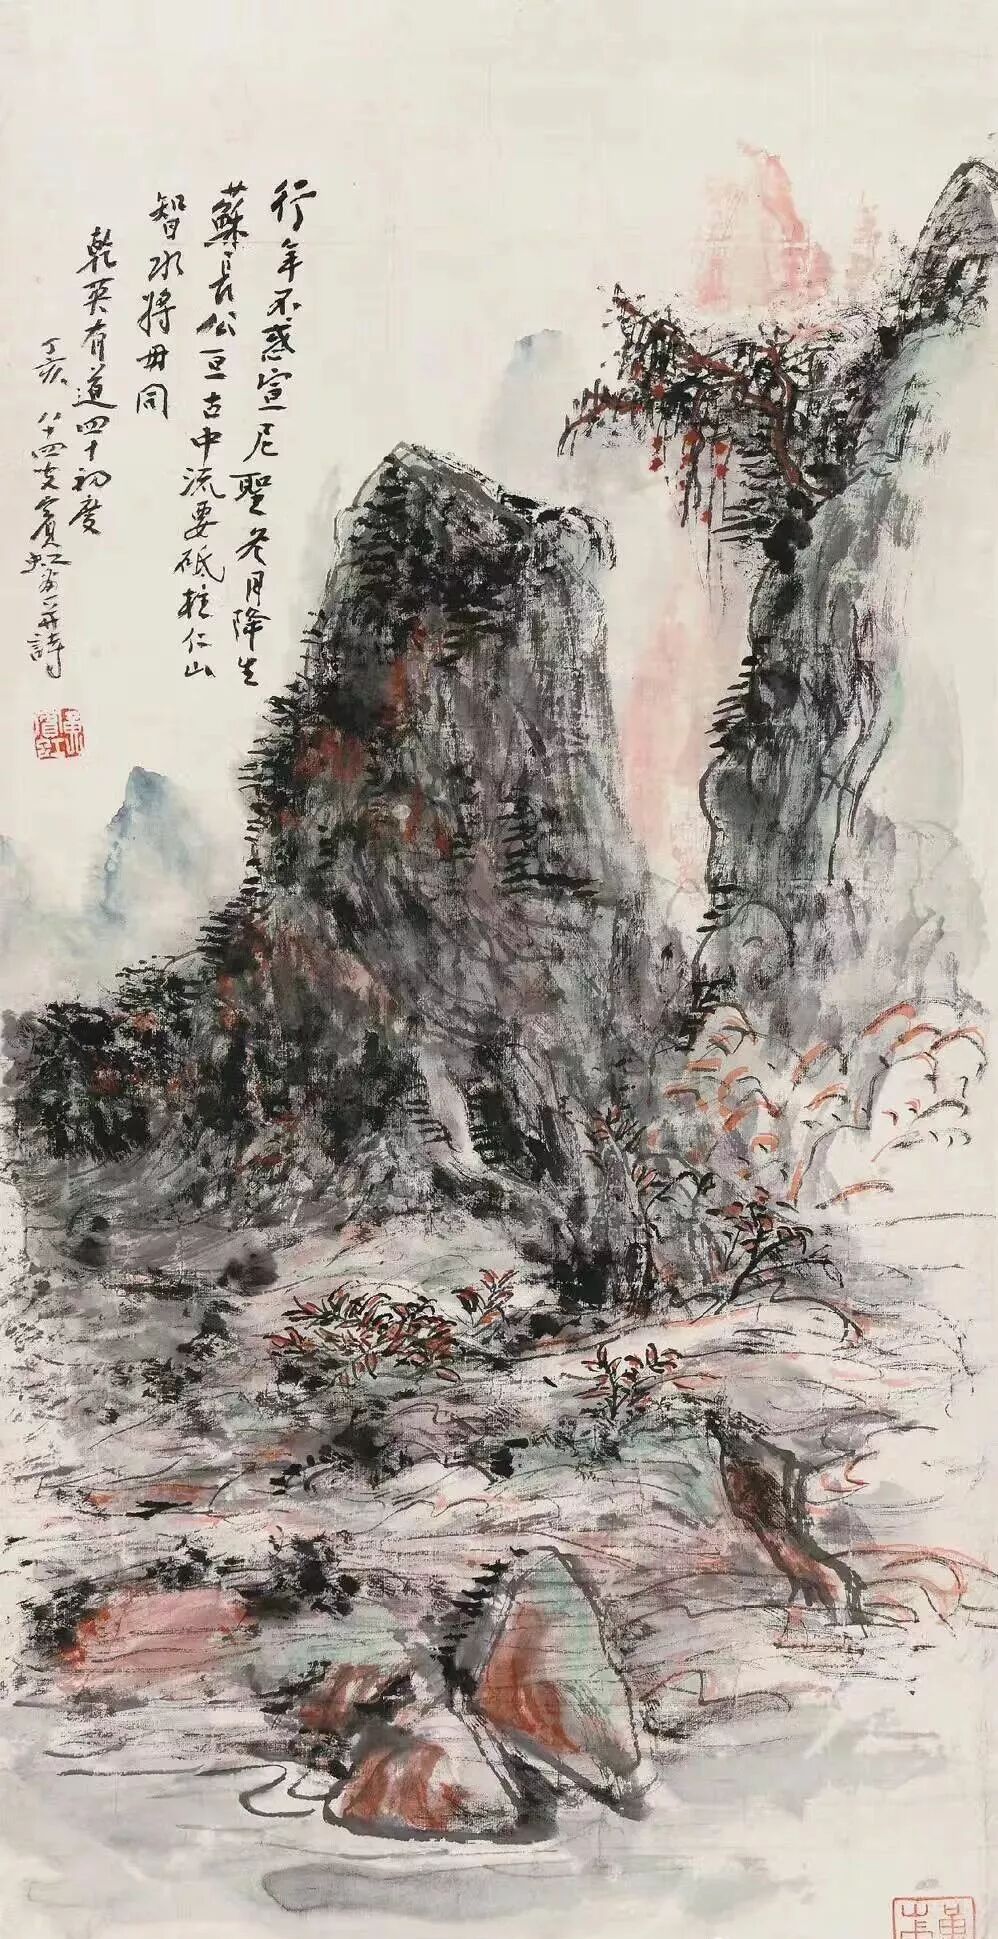 行年不惑宣尼聖冬月降生
蘇長公亘古中流要砥柱仁山
智水將毋同
乾英有道四十初度
丁亥八十四叟賓虹並詩
黃賓虹